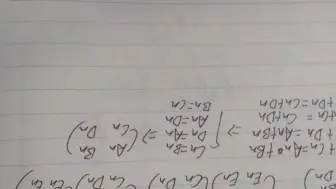 Dn) (En En) (Cn Dn) (En En
+ Cn = An + Bn Cn = Bn (An Bn
+ Dn = An + Bn ⇒ Dn = An ⇒ Cn Dn)
+ Cn = Cn + Dn An = Dn
+ Dn = Cn + Dn Bn = Cn